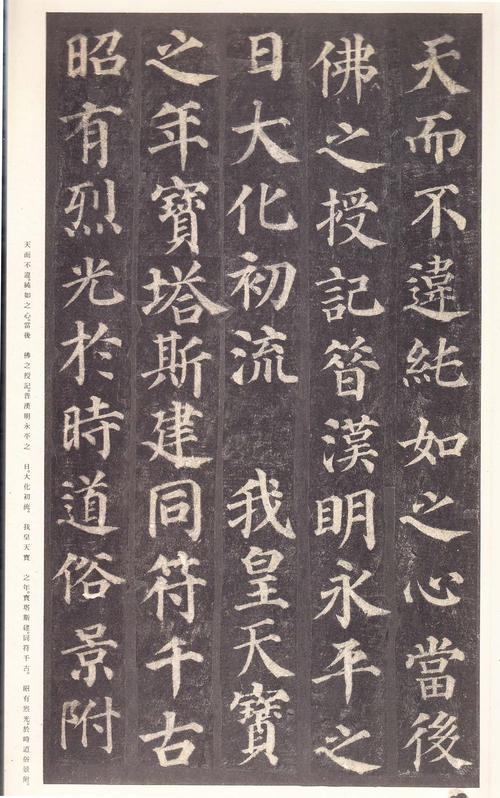 天而不違純如之心當後
佛之授記昔漢明永平之
日大化初流　我皇天寶
之年寶塔斯建同符千古
昭有烈光於時道俗景附
天而不違。純如之心。當後　佛之授記。昔漢明永平之　日。大化初流。　我皇天寶　之年。寶塔斯建。同符千古。　昭有烈光。於時道俗景附。